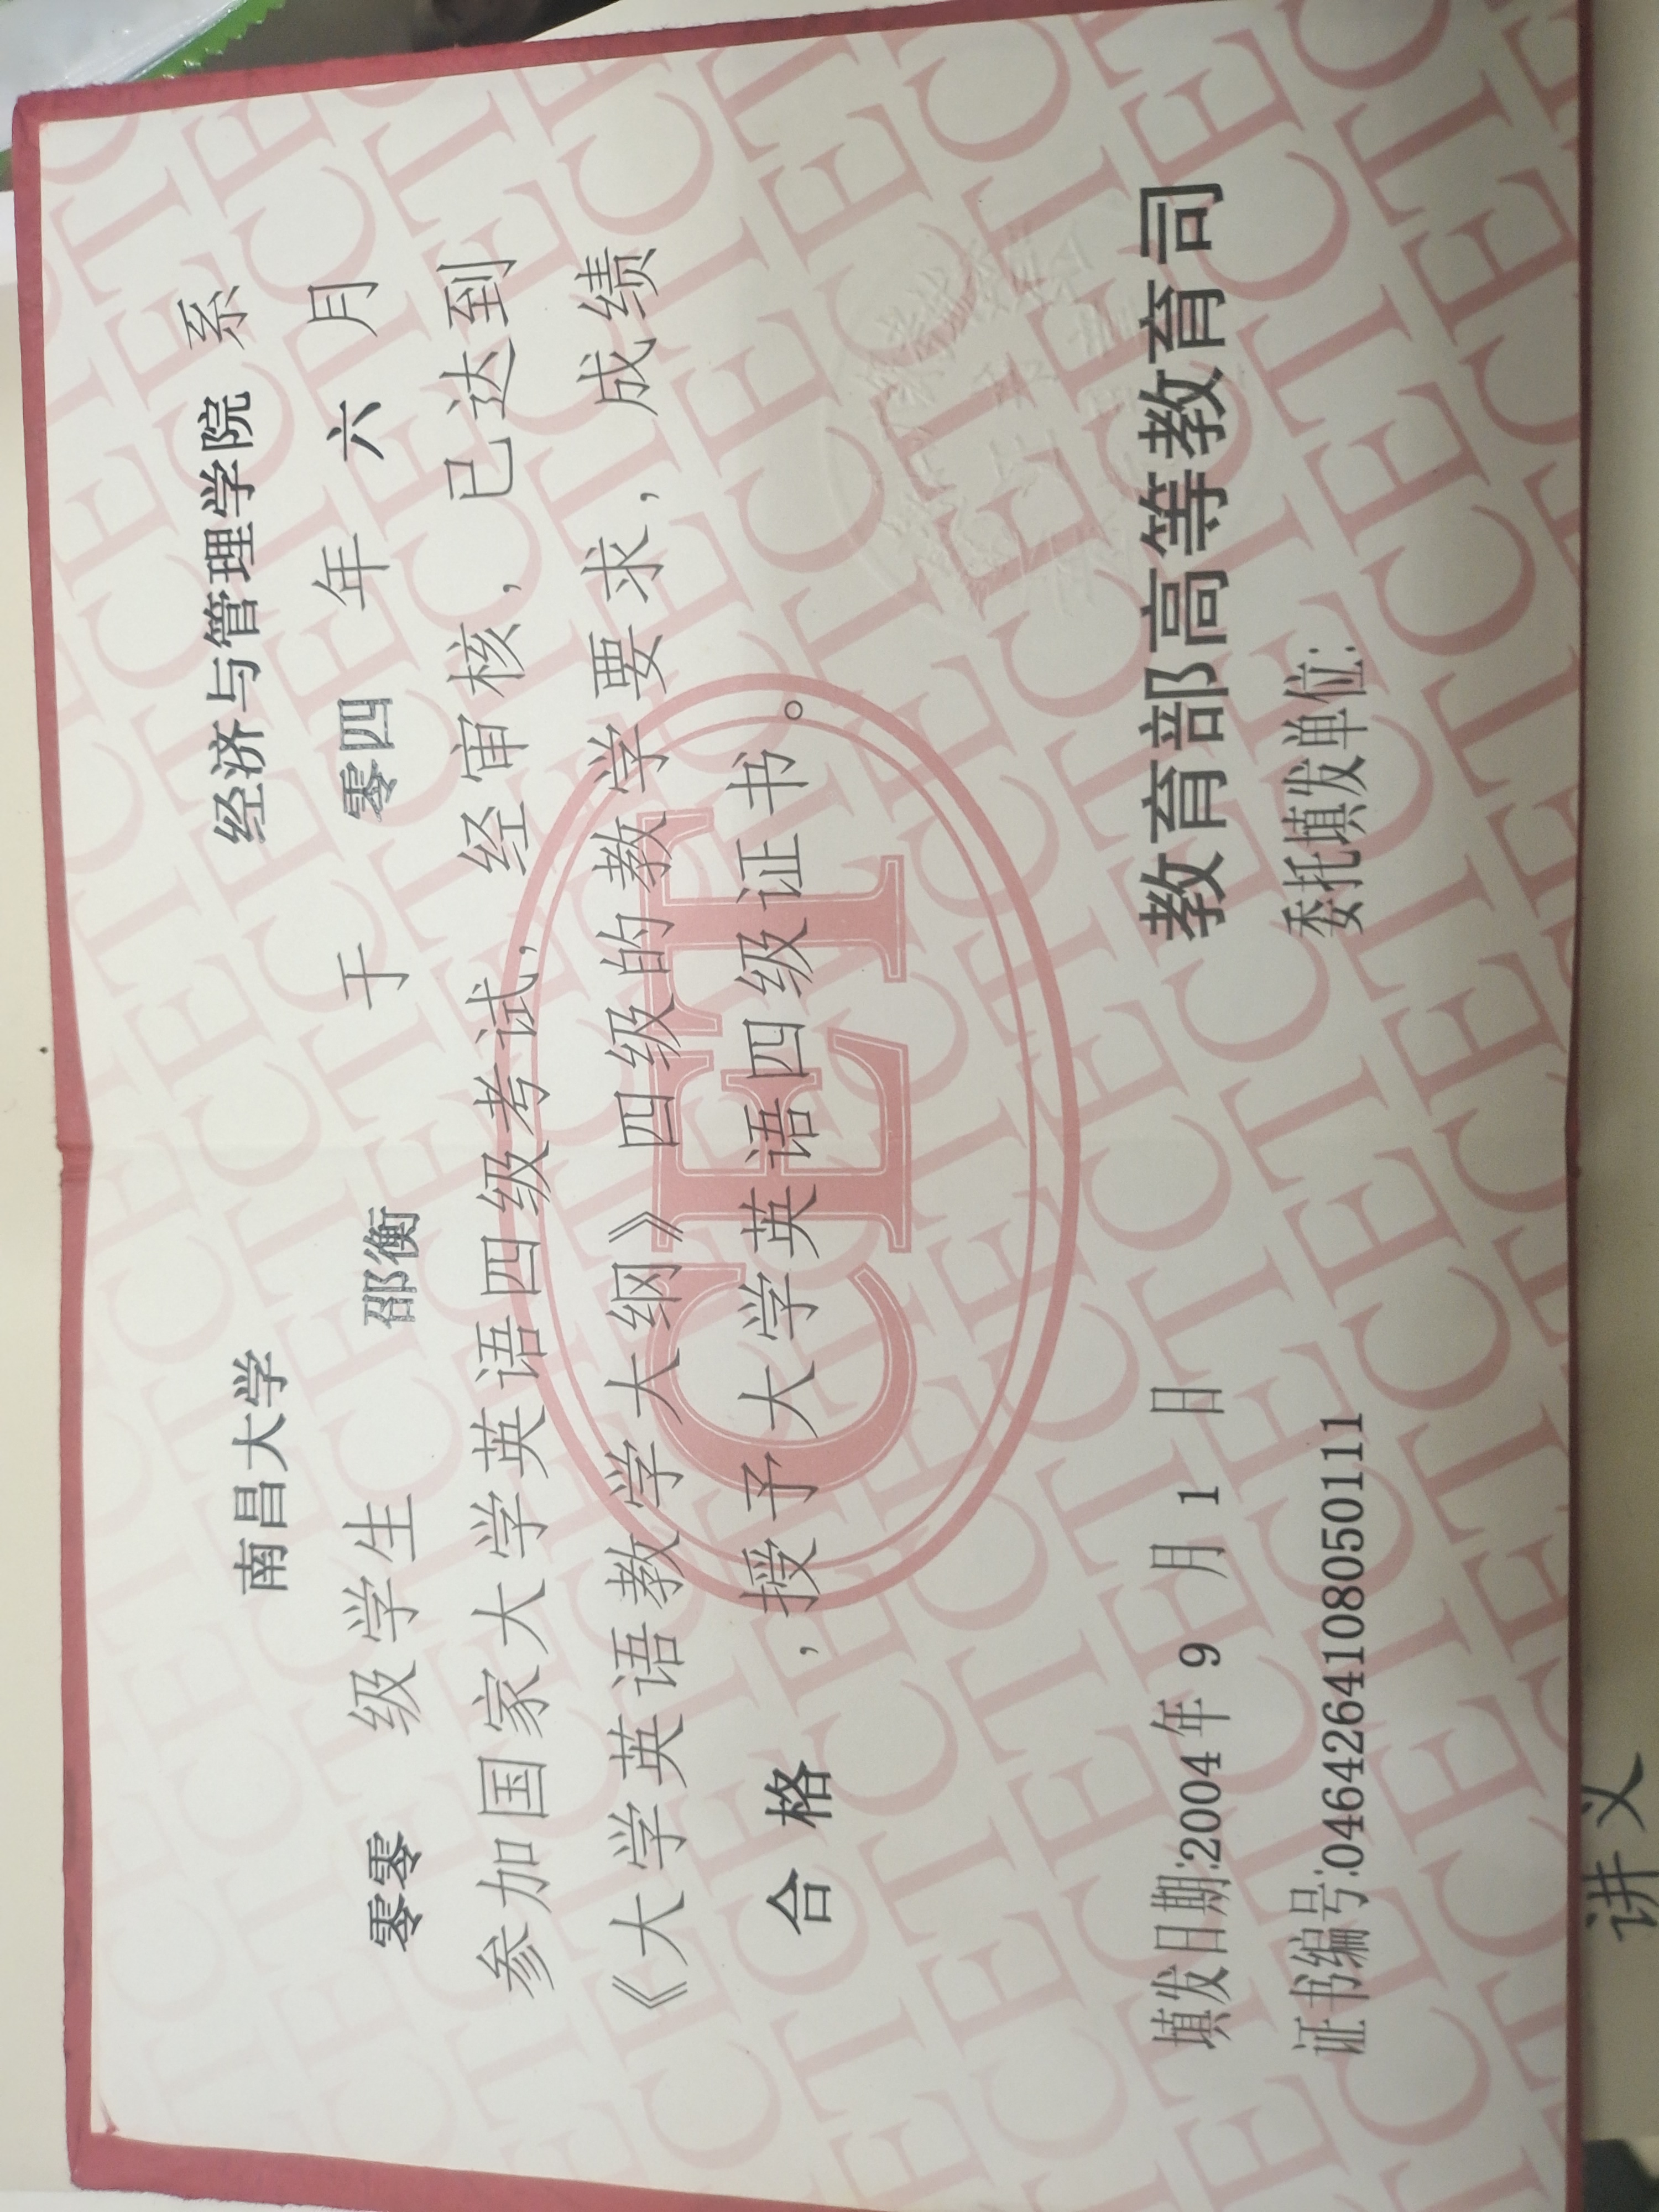 南昌大学 经济与管理学院 系
零零 级学生 邵衡 于 零四 年 六 月
参加国家大学英语四级考试，经审核，已达到
《大学英语教学大纲》四级的教学要求，成绩
合格，授予大学英语四级证书。
CET
教育部高等教育司
填发日期:2004年 9 月 1 日
委托填发单位:
证书编号:046426410805011​1
讲义